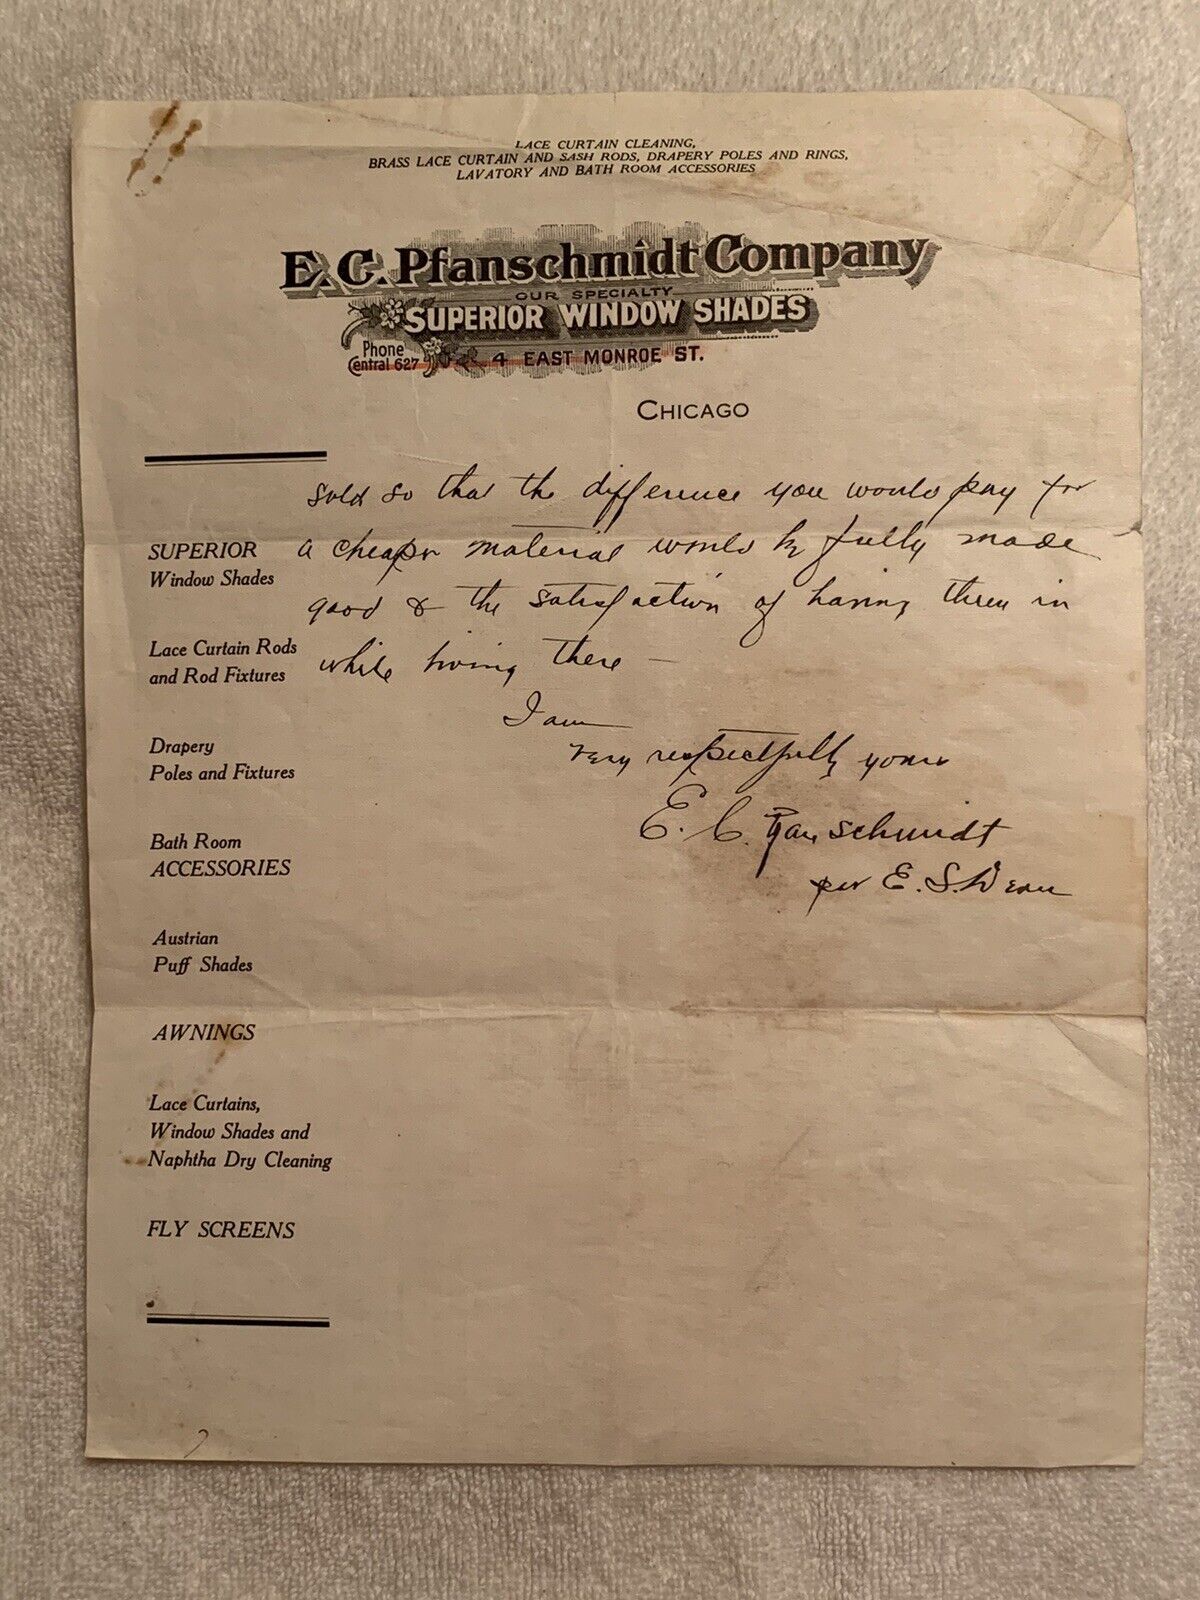 LACE CURTAIN CLEANING,
BRASS LACE CURTAIN AND SASH RODS, DRAPERY POLES AND RINGS,
LAVATORY AND BATH ROOM ACCESSORIES
E. C. Pfanschmidt Company
OUR SPECIALTY
SUPERIOR WINDOW SHADES
Phone
Central 627
4 EAST MONROE ST.
CHICAGO
sold so that the difference you would pay for
a cheaper material would be fully made
good & the satisfaction of having them in
while living there —
I am
very respectfully yours
E. C. Pfanschmidt
per E. S.
SUPERIOR
Window Shades
Lace Curtain Rods
and Rod Fixtures
Drapery
Poles and Fixtures
Bath Room
ACCESSORIES
Austrian
Puff Shades
AWNINGS
Lace Curtains,
Window Shades and
Naphtha Dry Cleaning
FLY SCREENS